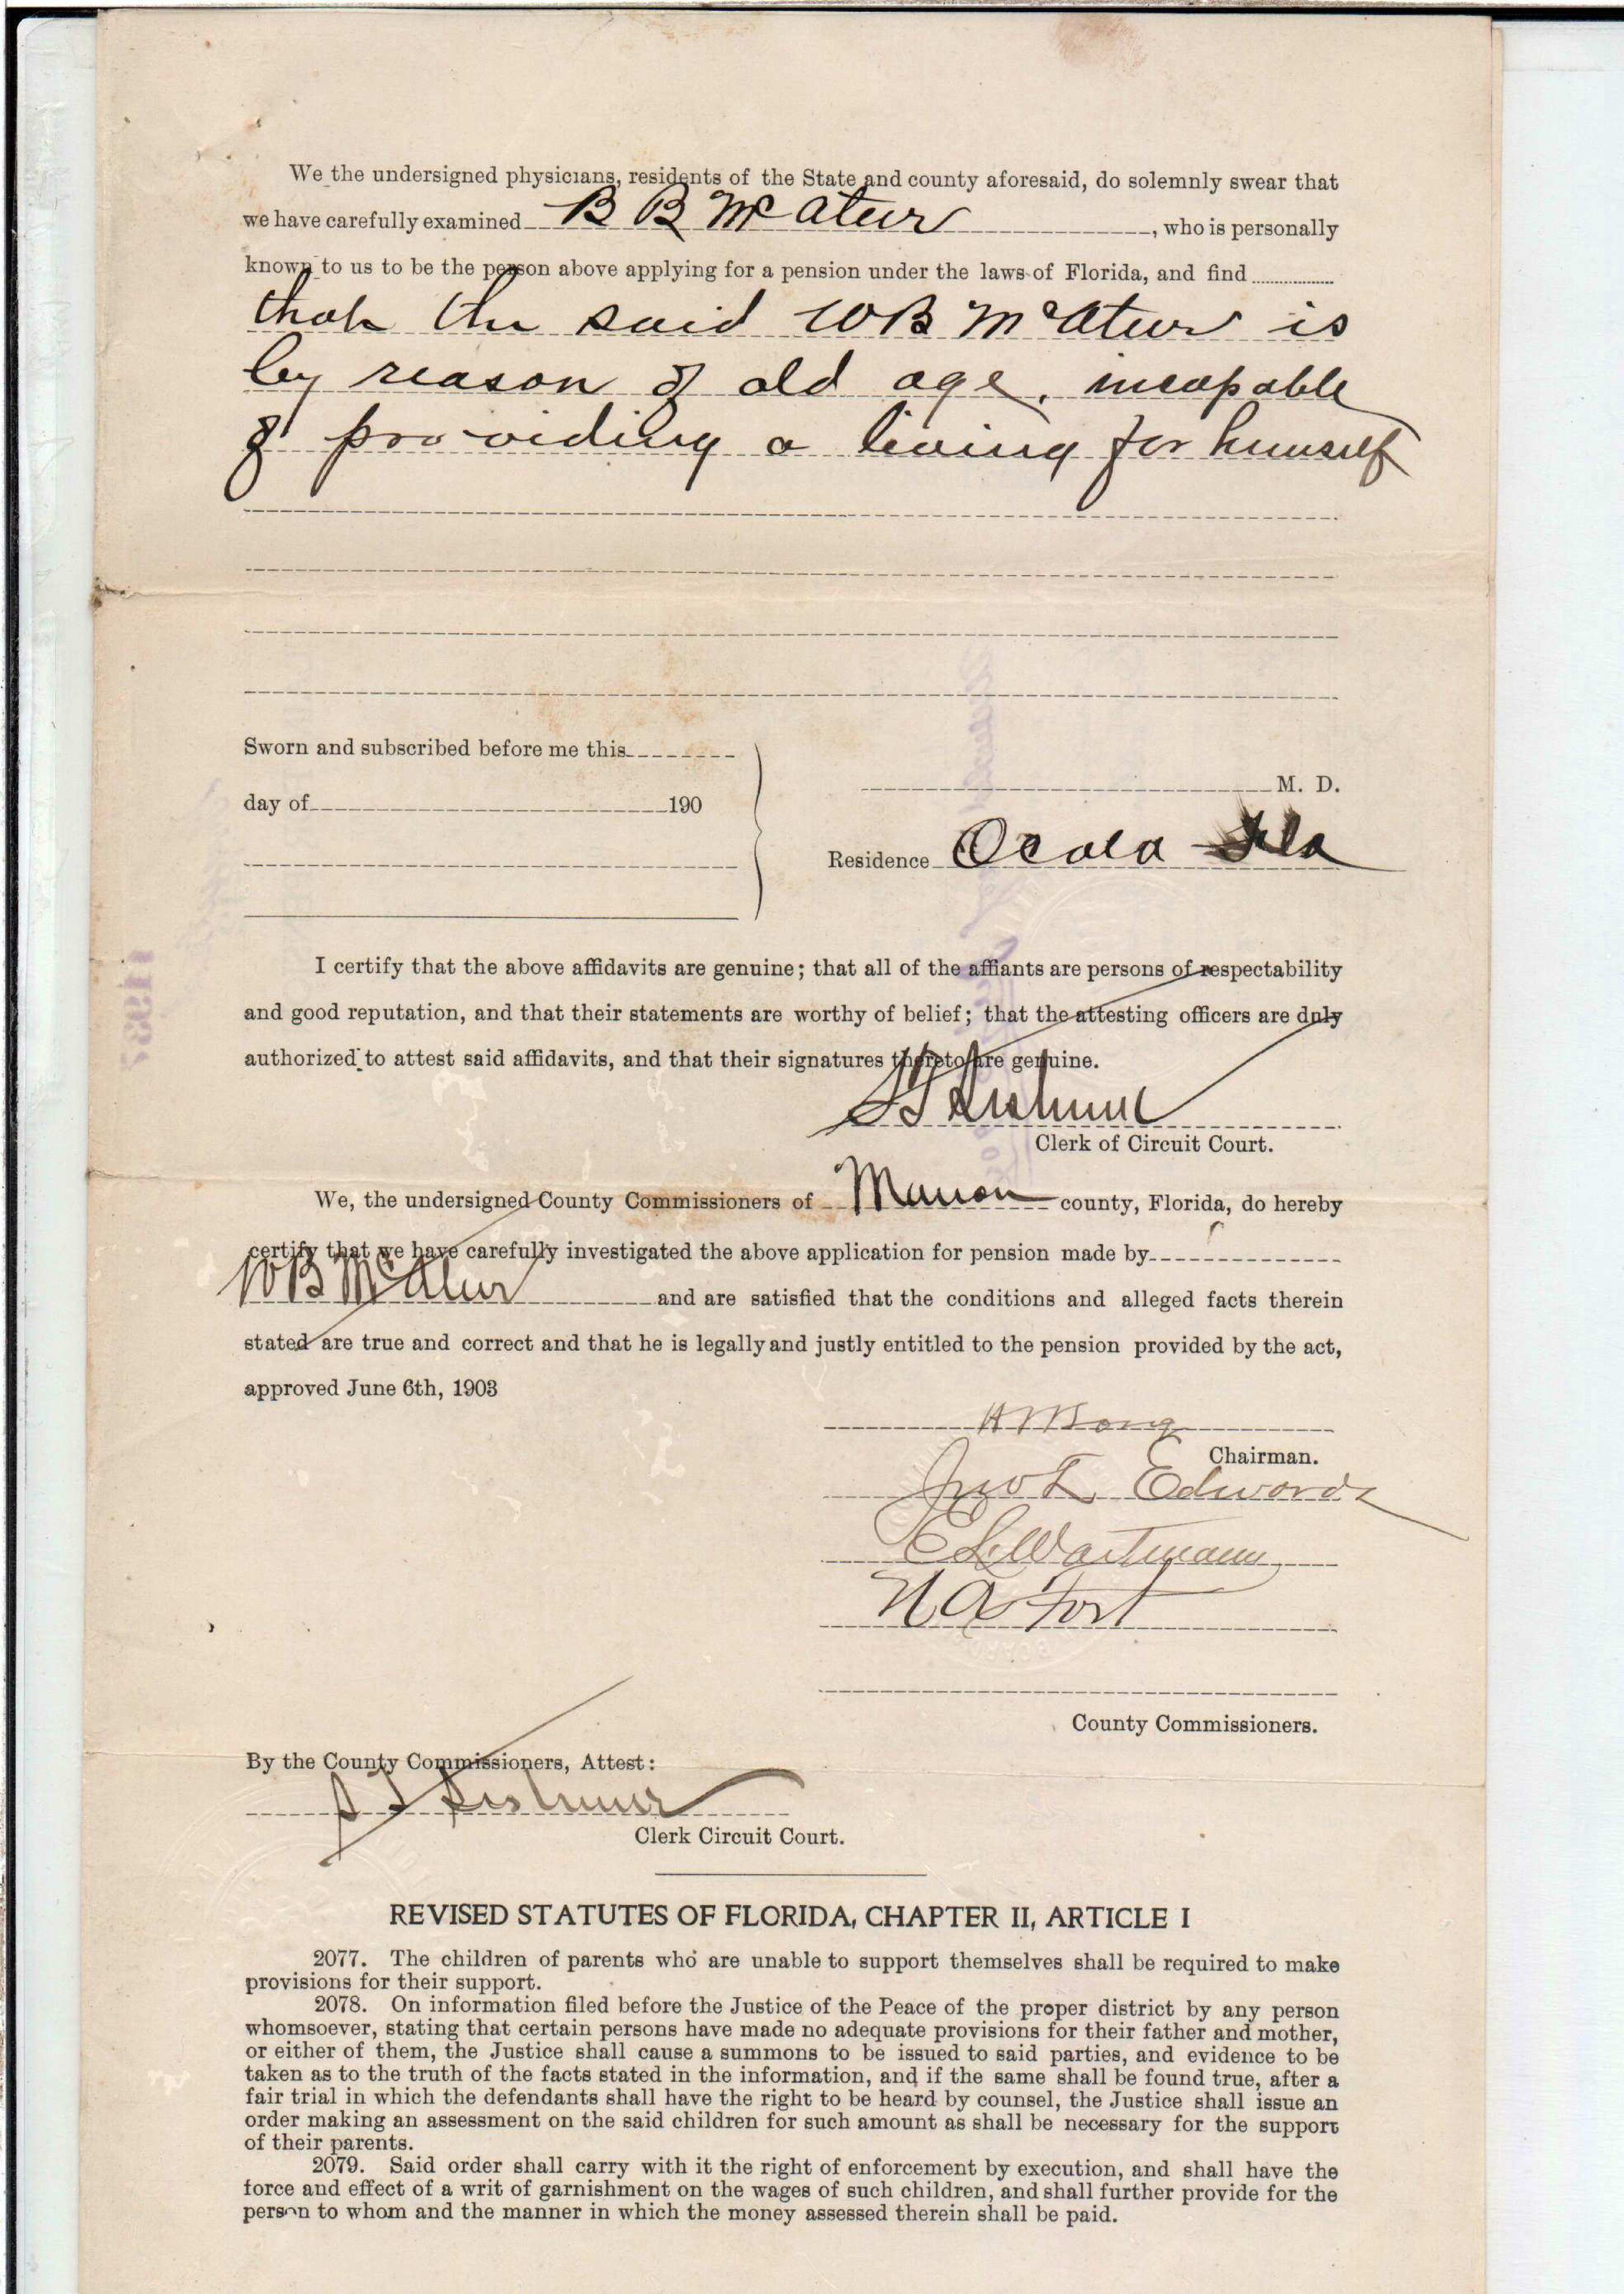 We the undersigned physicians, residents of the State and county aforesaid, do solemnly swear that
we have carefully examined B B McAteer, who is personally
known to us to be the person above applying for a pension under the laws of Florida, and find
that the said W B McAteer is
by reason of old age, incapable
of providing a living for himself
Sworn and subscribed before me this
M. D.
day of 190
Residence Ocala Fla
I certify that the above affidavits are genuine; that all of the affiants are persons of respectability
and good reputation, and that their statements are worthy of belief; that the attesting officers are duly
authorized to attest said affidavits, and that their signatures thereto are genuine.
S T Sistrunk
Clerk of Circuit Court.
We, the undersigned County Commissioners of Marion county, Florida, do hereby
certify that we have carefully investigated the above application for pension made by
W B McAteer and are satisfied that the conditions and alleged facts therein
stated are true and correct and that he is legally and justly entitled to the pension provided by the act,
approved June 6th, 1903
Chairman.
Jno L Edwards
E L Wartmann
N A Fort
County Commissioners.
By the County Commissioners, Attest:
S T Sistrunk
Clerk Circuit Court.
REVISED STATUTES OF FLORIDA, CHAPTER II, ARTICLE I
2077. The children of parents who are unable to support themselves shall be required to make
provisions for their support.
2078. On information filed before the Justice of the Peace of the proper district by any person
whomsoever, stating that certain persons have made no adequate provisions for their father and mother,
or either of them, the Justice shall cause a summons to be issued to said parties, and evidence to be
taken as to the truth of the facts stated in the information, and if the same shall be found true, after a
fair trial in which the defendants shall have the right to be heard by counsel, the Justice shall issue an
order making an assessment on the said children for such amount as shall be necessary for the support
of their parents.
2079. Said order shall carry with it the right of enforcement by execution, and shall have the
force and effect of a writ of garnishment on the wages of such children, and shall further provide for the
person to whom and the manner in which the money assessed therein shall be paid.